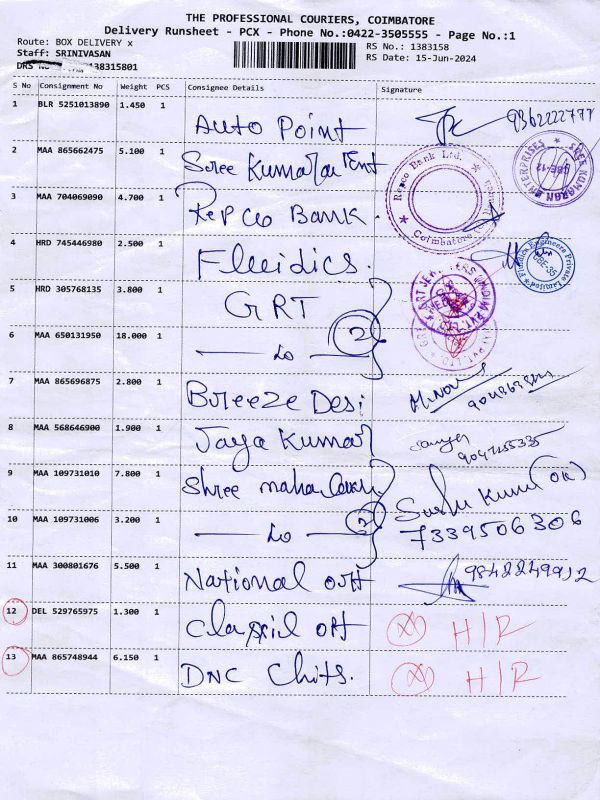 THE PROFESSIONAL COURIERS, COIMBATORE
Delivery Runsheet - PCX - Phone No.:0422-3505555 - Page No.:1
Route: BOX DELIVERY x
RS No.: 1383158
Staff: SRINIVASAN
RS Date: 15-Jun-2024
DRS No 138315801
S No Consignment No Weight PCS Consignee Details Signature
1 BLR 5251013890 1.450 1 Auto Point 9362222777
2 MAA 865662475 5.100 1 Sree Kumaran Ent
SREE KUMARAN ENTERPRISES CBE-12
3 MAA 704069090 4.700 1 Repco Bank
Repco Bank Ltd. Coimbatore
4 HRD 745446980 2.500 1 Fluidics
Private Limited CBE-35
5 HRD 305768135 3.800 1 GRT
6 MAA 650131950 18.000 1 do 2
7 MAA 865696875 2.800 1 Breeze Desi
8 MAA 568646900 1.900 1 Jaya Kumar
9 MAA 109731010 7.800 1 Shree maha
10 MAA 109731006 3.200 1 do 2 7339506306
11 MAA 300801676 5.500 1 National 9842249912
12 DEL 529765975 1.300 1 X H/R
13 MAA 865748944 6.150 1 DNC Chits. X H/R